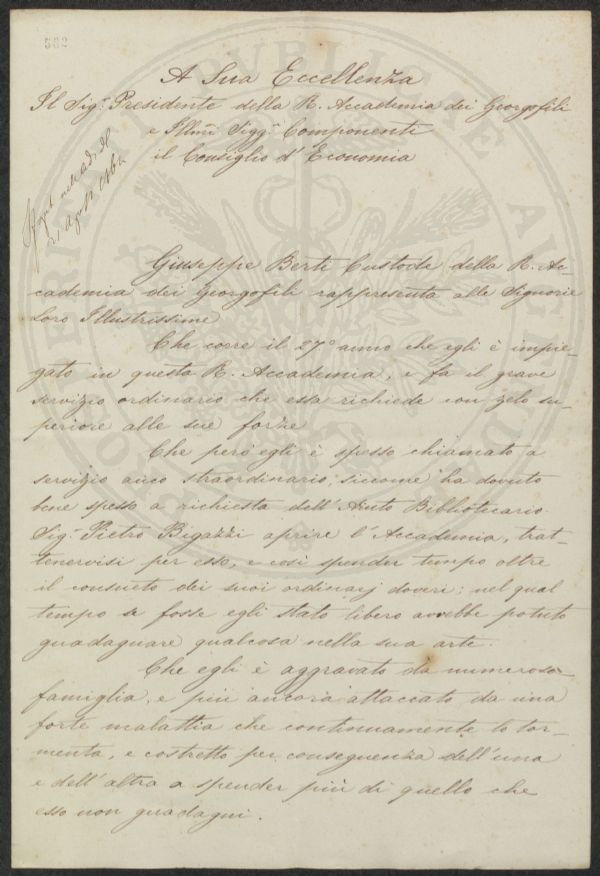 582
A Sua Eccellenza
Il Sigr. Presidente della R. Accademia dei Georgofili
e Illmi Sigg.ri Componenti
il Consiglio d'Economia
Giuseppe Berti Custode della R. Ac-
cademia dei Georgofili rappresenta alle Signorie
Loro Illustrissime
Che corre il 27.° anno che egli è impie-
gato in questa R. Accademia, e fa il grave
servizio ordinario che essa richiede con zelo su-
periore alle sue forze
Che però egli è spesso chiamato a
servizio anco straordinario; siccome ha dovuto
bene spesso a richiesta dell'Aiuto Bibliotecario
Sigr. Pietro Bigazzi aprire l'Accademia, trat-
tenervisi per esso, e così spender tempo oltre
il consueto dei suoi ordinarj doveri: nel qual
tempo se fosse egli stato libero avrebbe potuto
guadagnare qualcosa nella sua arte.
Che egli è aggravato da numerosa
famiglia, e più ancora attaccato da una
forte malattia che continuamente lo tor-
menta, e costretto per conseguenza dell'una
e dell'altra a spender più di quello che
esso non guadagni.